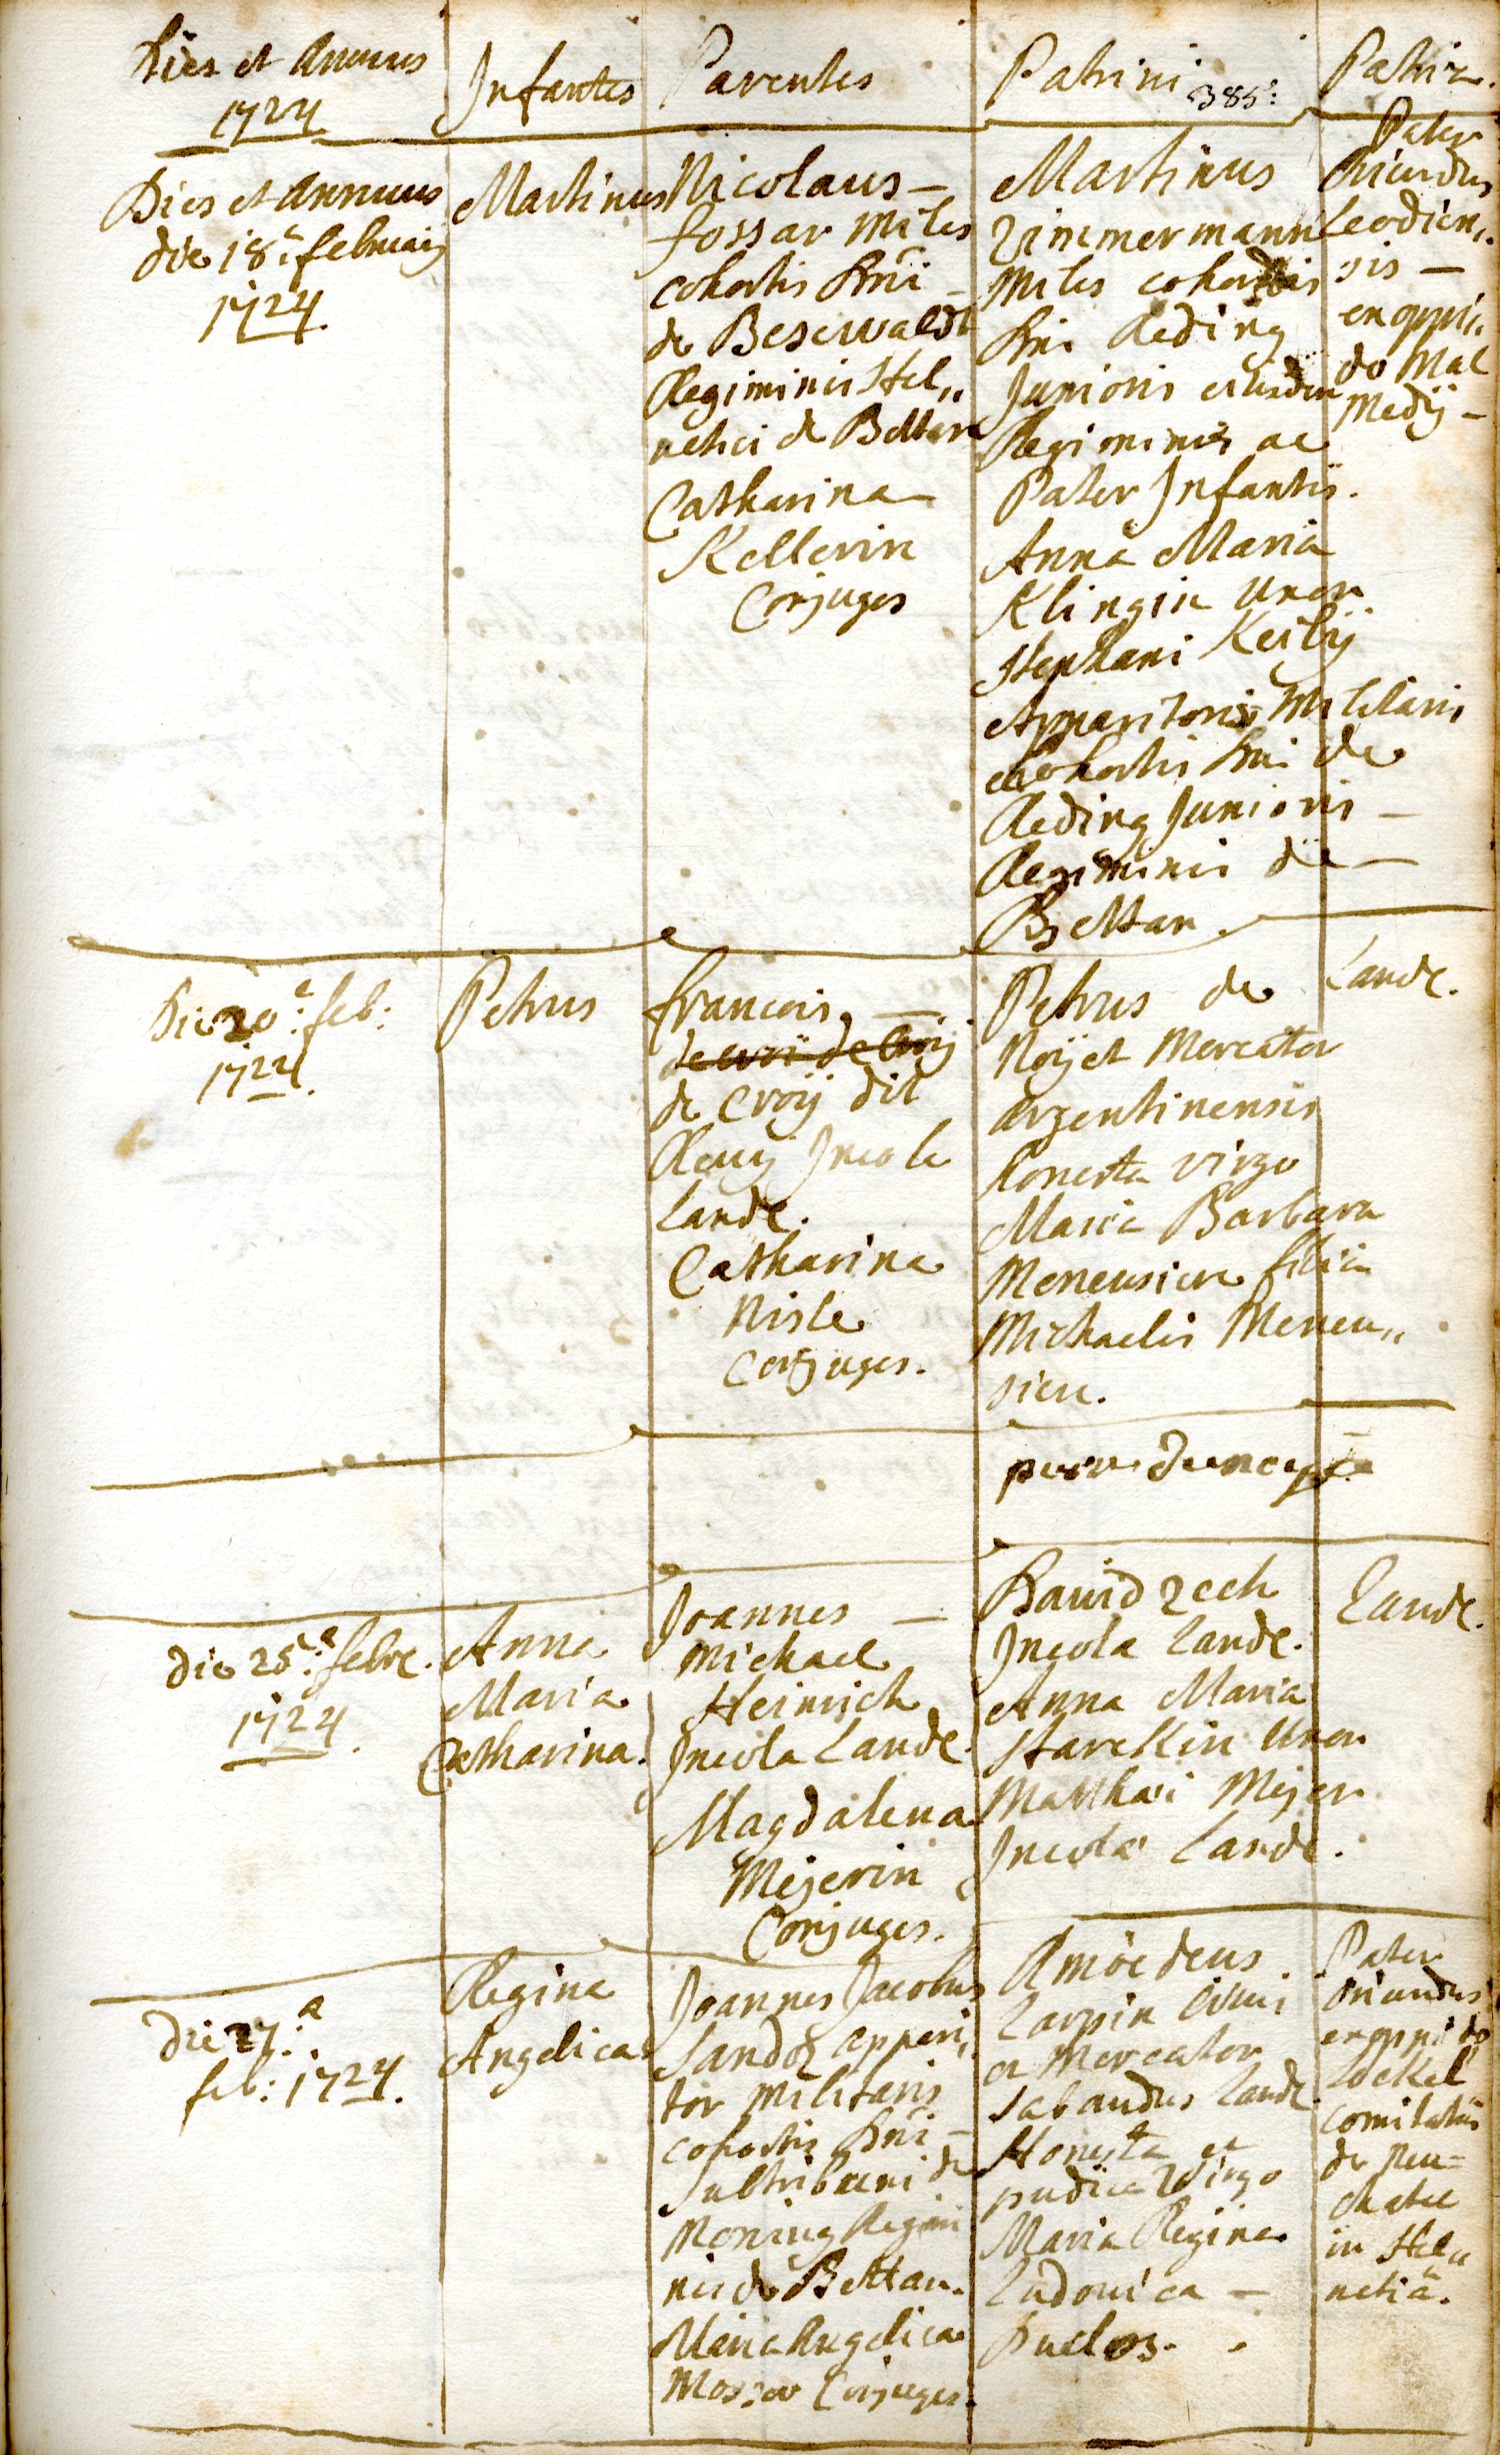 Dies et Annus
1724
Infantes
Parentes
Patrini
385:
Patria.
Dies et Annus
die 18.a februarij
1724.
Martinus
Nicolaus –
fossar Miles
cohortis Dni –
de Beserwaldt
Regiminis Hel„
vetici de Bettan
Catharina
Kellerin
Conjuges
Martinus
Zimmermann
Miles cohortis
Dni Reding
Junioris eiusdem
Regiminis ac
Pater Infantis.
Anna Maria
Klingin Uxor
Stephani Keibij
Apparitoris Militaris
cohortis Dni de
Reding Junioris –
Regiminis de –
Bettan.
Pater
Oriundus
Leodien„
sis –
ex oppi„
do Mal
Medij –
Die 20.a feb:
1724.
Petrus
francois –
de Croij dit
Remij Incola
Land.
Catharina
Nisle
Conjuges.
Petrus de
Noijet Mercator
argentinensis
honesta virgo
Maria Barbara
Meneusier filia
Michaelis Meneu„
sier.
Land.
Die 25.a febr.
1724.
Anna
Maria
Catharina.
Joannes –
Michael
Heinrich
Incola Land.
Magdalena
Mejerin
Conjuges.
David Zech
Incola Land.
Anna Maria
Starckin Uxor
Matthaei Mejer
Incolae Land.
Land.
Die 27.a
feb: 1724.
Regina
Angelica
Joannes Jacobus
Sandoz appari„
tor Militaris
cohortis Dni –
Subtribuni de
Monnig Regimi
nis de Bettan.
Maria Angelica
Conjuges.
Amoedeus
Larpin Civis
et Mercator
Sabaudus Land.
Honesta et
pudica Virgo
Maria Regina
Ludovica –
Duclos.
Pater
Oriundus
ex oppido
Lockel
comitatus
de Neu=
chatel
in Hel„
vetia.